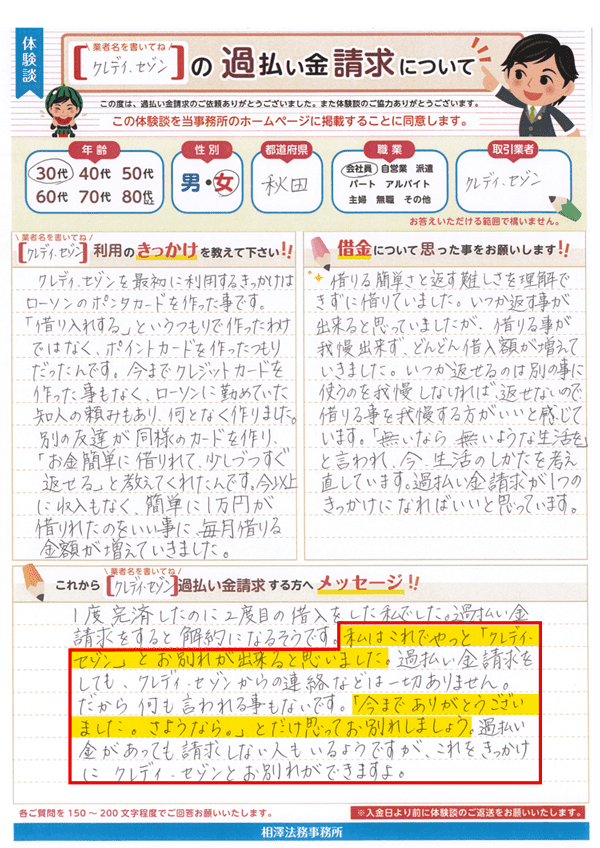 体験談
業者名を書いてね
[クレディ.セゾン]の過払い金請求について
この度は、過払い金請求のご依頼ありがとうございました。また体験談のご協力ありがとうございます。
この体験談を当事務所のホームページに掲載することに同意します。
年齢
30代 40代 50代
60代 70代 80代以上
性別
男・女
都道府県
秋田
職業
会社員 自営業 派遣
パート アルバイト
主婦 無職 その他
取引業者
クレディ.セゾン
お答えいただける範囲で構いません。
業者名を書いてね
[クレディ.セゾン]利用のきっかけを教えて下さい!!
クレディ.セゾンを最初に利用するきっかけは
ローソンのポンタカードを作った事です。
「借り入れする」というつもりで作ったわけ
ではなく、ポイントカードを作ったつもり
だったんです。今までクレジットカードを
作った事もなく、ローソンに勤めていた
知人の頼みもあり、何となく作りました。
別の友達が同様のカードを作り、
「お金簡単に借りれて、少しづつすぐ
返せる」と教えてくれたんです。今以上
に収入もなく、簡単に1万円が
借りれたのをいい事に、毎月借りる
金額が増えていきました。
借金について思った事をお願いします!!
借りる簡単さと返す難しさを理解で
きずに借りていました。いつか返す事が
出来ると思っていましたが、借りる事が
我慢出来ず、どんどん借入額が増えて
いきました。いつか返せるのは別の事に
使うのを我慢しなければ、返せないので
借りる事を我慢する方がいいと感じて
います。「無いなら無いような生活を」
と言われ、今、生活のしかたを考え
直しています。過払い金請求が1つの
きっかけになればいいと思っています。
業者名を書いてね
これから[クレディ.セゾン]過払い金請求する方へメッセージ!!
1度完済したのに2度目の借入をした私でした。過払い金
請求をすると解約になるそうです。私はこれでやっと「クレディ.
セゾン」とお別れが出来ると思いました。過払い金請求を
しても、クレディ.セゾンからの連絡などは一切ありません。
だから何も言われる事もないです。「今までありがとうござい
ました。さようなら。」とだけ思ってお別れしましょう。過払い
金があっても請求しない人もいるようですが、これをきっかけ
にクレディ.セゾンとお別れができますよ。
各ご質問を150〜200文字程度でご回答お願いいたします。
※入金日より前に体験談のご返送をお願いいたします。
相澤法務事務所